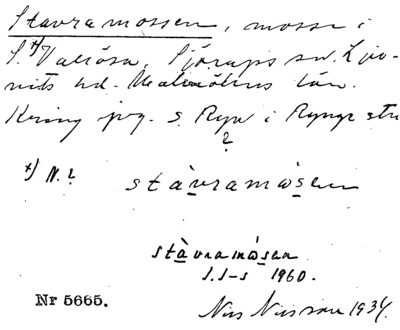 Stavramossen, mosse i
S. +) Vallösa, Sjörups sn. Lju-
nits hd. Malmöhus län.
Kring jvg. s. Ryd i Rynge stn
?
+) N.? stàvramòsen
stàvramòsen
I.I-s 1960.
Nr 5665. Nils Nilsson 1934.